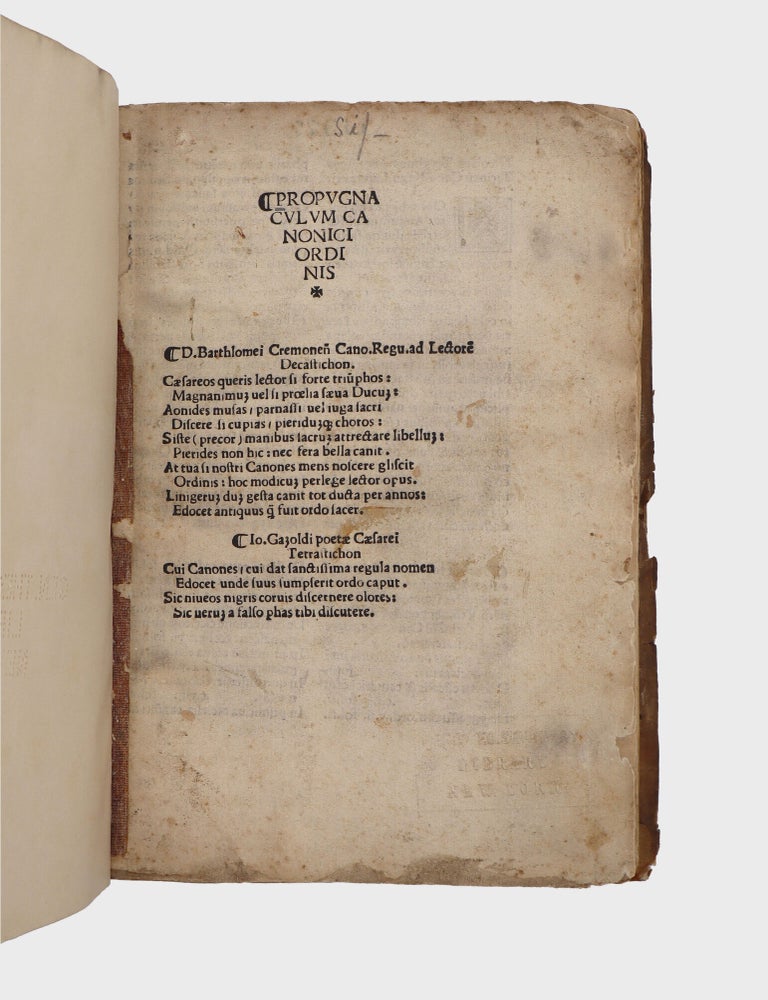 ¶PROPVGNA
CVLVM CA
NONICI
ORDI
NIS
✠
¶D.Barthlomei Cremoneñ Cano.Regu.ad Lectorẽ
Decastichon.
Cæsareos queris lector si forte triũphos:
Magnanimuꝫ uel si prœlia sæua Ducuꝫ:
Aonides musas/ parnassi uel iuga sacri
Discere si cupias/ pieriduꝫqꝫ choros:
Siste (precor) manibus sacruꝫ attrectare libelluꝫ:
Pierides non hic: nec fera bella canit.
At tua si nostri Canones mens noscere gliscit
Ordinis: hoc modicuꝫ perlege lector opus.
Linigeruꝫ duꝫ gesta canit tot ducta per annos:
Edocet antiquus q̃ fuit ordo sacer.
¶Io.Gaꝫoldi poetæ Cæsarei
Tetrastichon
Cui Canones/ cui dat sanctissima regula nomen
Edocet unde suus sumpserit ordo caput.
Sic niueos nigris coruis discernere olores:
Sic ueruꝫ a falso phas tibi discutere.